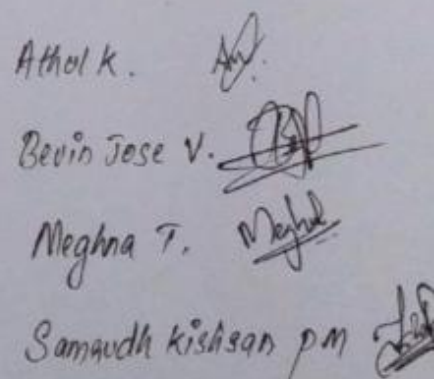 Athul K.
Bevin Jose V.
Meghna T. Meghna
Samavdh Kishsan PM